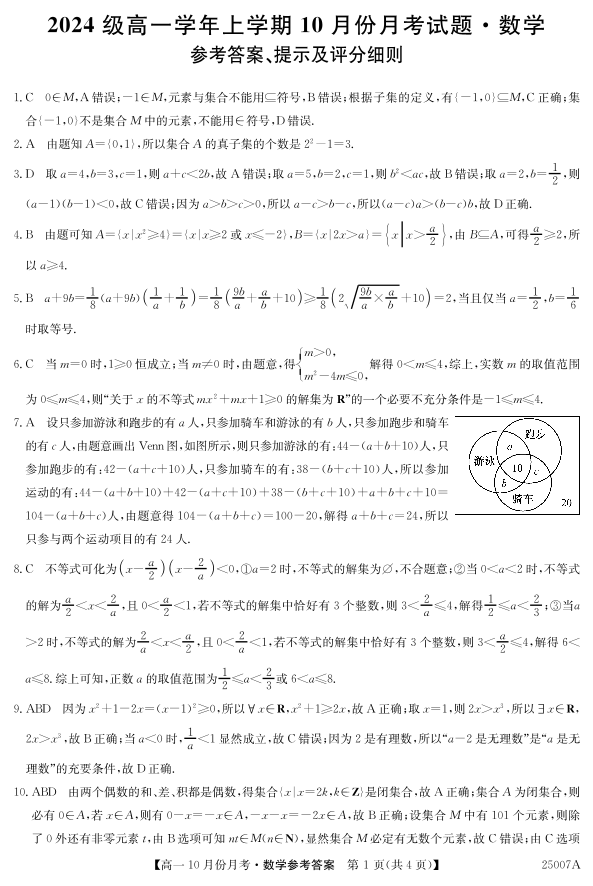 2024 级高一学年上学期 10 月份月考试题·数学
参考答案、提示及评分细则
1. C 0∈M,A 错误;-1∈M,元素与集合不能用⊆符号,B 错误;根据子集的定义,有{-1,0}⊆M,C 正确;集
合{-1,0}不是集合 M 中的元素,不能用∈符号,D 错误.
2. A 由题知 A={0,1},所以集合 A 的真子集的个数是 2²-1=3.
3. D 取 a=4,b=3,c=1,则 a+c<2b,故 A 错误;取 a=5,b=2,c=1,则 b²<ac,故 B 错误;取 a=2,b=1/2,则
(a-1)(b-1)<0,故 C 错误;因为 a>b>c>0,所以 a-c>b-c,所以(a-c)a>(b-c)b,故 D 正确.
4. B 由题可知 A={x|x²≥4}={x|x≥2 或 x≤-2},B={x|2x>a}={x|x>a/2},由 B⊆A,可得 a/2≥2,所
以 a≥4.
5. B a+9b=1/8(a+9b)(1/a+1/b)=1/8(9b/a+a/b+10)≥1/8(2√(9b/a×a/b)+10)=2,当且仅当 a=1/2,b=1/6
时取等号.
6. C 当 m=0 时,1≥0 恒成立;当 m≠0 时,由题意,得{m>0, m²-4m≤0, 解得 0<m≤4,综上,实数 m 的取值范围
为 0≤m≤4,则“关于 x 的不等式 mx²+mx+1≥0 的解集为 R”的一个必要不充分条件是-1≤m≤4.
7. A 设只参加游泳和跑步的有 a 人,只参加骑车和游泳的有 b 人,只参加跑步和骑车
的有 c 人,由题意画出 Venn 图,如图所示,则只参加游泳的有:44-(a+b+10)人,只
参加跑步的有:42-(a+c+10)人,只参加骑车的有:38-(b+c+10)人,所以参加
运动的有:44-(a+b+10)+42-(a+c+10)+38-(b+c+10)+a+b+c+10=
104-(a+b+c)人,由题意得 104-(a+b+c)=100-20,解得 a+b+c=24,所以
只参与两个运动项目的有 24 人.
跑步
a
游泳
10
c
b
骑车
20
8. C 不等式可化为(x-a/2)(x-2/a)<0,①a=2 时,不等式的解集为∅,不合题意;②当 0<a<2 时,不等式
的解为 a/2<x<2/a,且 0<a/2<1,若不等式的解集中恰好有 3 个整数,则 3<2/a≤4,解得 1/2≤a<2/3;③当a
>2 时,不等式的解为 2/a<x<a/2,且 0<2/a<1,若不等式的解集中恰好有 3 个整数,则 3<a/2≤4,解得 6<
a≤8. 综上可知,正数 a 的取值范围为 1/2≤a<2/3 或 6<a≤8.
9. ABD 因为 x²+1-2x=(x-1)²≥0,所以∀x∈R,x²+1≥2x,故 A 正确;取 x=1,则 2x>x³,所以∃x∈R,
2x>x³,故 B 正确;当 a<0 时,1/a<1 显然成立,故 C 错误;因为 2 是有理数,所以“a-2 是无理数”是“a 是无
理数”的充要条件,故 D 正确.
10. ABD 由两个偶数的和、差、积都是偶数,得集合{x|x=2k,k∈Z}是闭集合,故 A 正确;集合 A 为闭集合,则
必有 0∈A,若 x∈A,则有 0-x=-x∈A,-x-x=-2x∈A,故 B 正确;设集合 M 中有 101 个元素,则除
了 0 外还有非零元素 t,由 B 选项可知 nt∈M(n∈N),显然集合 M 必定有无数个元素,故 C 错误;由 C 选项
【高一 10 月份月考·数学参考答案 第 1 页(共 4 页)】 25007A